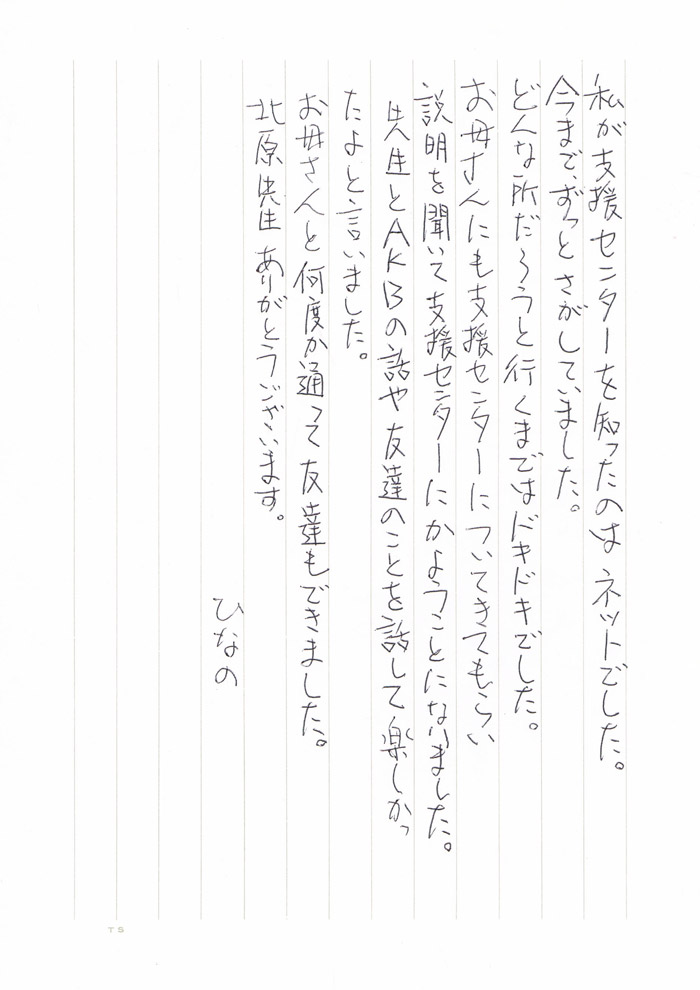 私が支援センターを知ったのはネットでした。
今まで、ずっとさがしていました。
どんな所だろうと行くまではドキドキでした。
お母さんにも支援センターについてきてもらい
説明を聞いて支援センターにかようことになりました。
先生とAKBの話や友達のことを話して楽しかっ
たよと言いました。
お母さんと何度か通って友達もできました。
北原先生ありがとうございます。
ひなの
TS